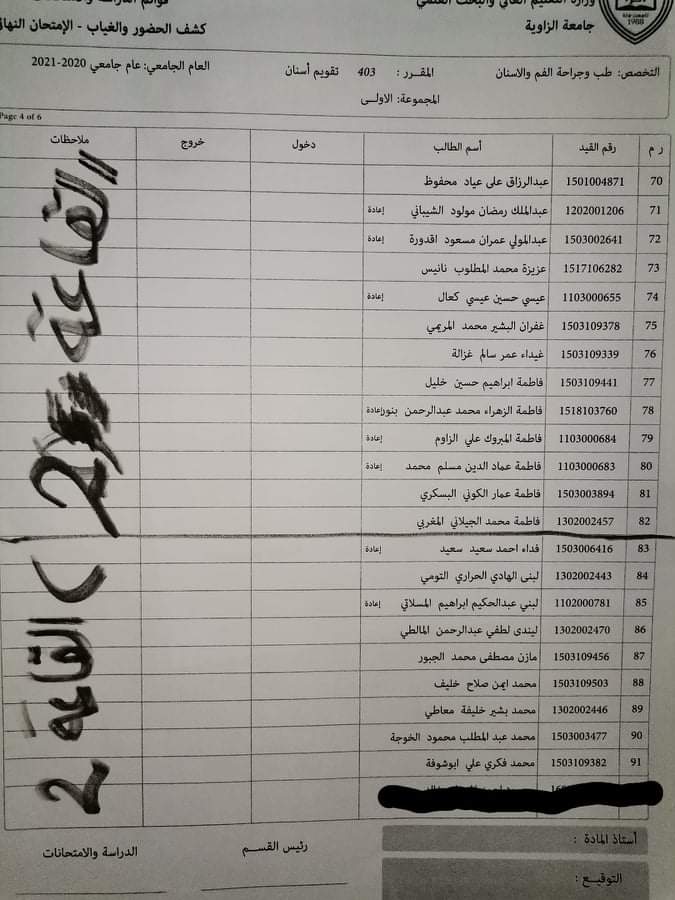 وزارة التعليم العالي والبحث العلمي
جامعة الزاوية
1988
قوائم الدراسة والامتحانات
كشف الحضور والغياب - الإمتحان النهائي
التخصص: طب وجراحة الفم والاسنان المقرر : 403 تقويم أسنان العام الجامعي: عام جامعي 2020-2021
المجموعة: الاولى
Page 4 of 6
ر م رقم القيد أسم الطالب دخول خروج ملاحظات
70 1501004871 عبدالرزاق على عياد محفوظ
71 1202001206 عبدالملك رمضان مولود الشيباني إعادة
72 1503002641 عبدالمولي عمران مسعود اقدورة إعادة
73 1517106282 عزيزة محمد المطلوب نانيس
74 1103000655 عيسي حسين عيسي كعال إعادة
75 1503109378 غفران البشير محمد المريمي
76 1503109339 غيداء عمر سالم غزالة
77 1503109441 فاطمة ابراهيم حسين خليل
78 1518103760 فاطمة الزهراء محمد عبدالرحمن بنور إعادة
79 1103000684 فاطمة المبروك علي الزاوم إعادة
80 1103000683 فاطمة عماد الدين مسلم محمد إعادة
81 1503003894 فاطمة عمار الكوني البسكري
82 1302002457 فاطمة محمد الجيلاني المغربي
83 1503006416 فداء احمد سعيد سعيد إعادة
84 1302002443 لبنى الهادي الحراري التومي
85 1102000781 لبني عبدالحكيم ابراهيم المسلاتي إعادة
86 1302002470 ليندى لطفي عبدالرحمن المالطي
87 1503109456 مازن مصطفى محمد الجبور
88 1503109503 محمد ايمن صلاح خليف
89 1302002446 محمد بشير خليفة معاطي
90 1503003477 محمد عبد المطلب محمود الخوجة
91 1503109382 محمد فكري علي ابوشوفة
القاعة
2
القاعة
2
أستاذ المادة : رئيس القسم الدراسة والامتحانات
التوقيع :